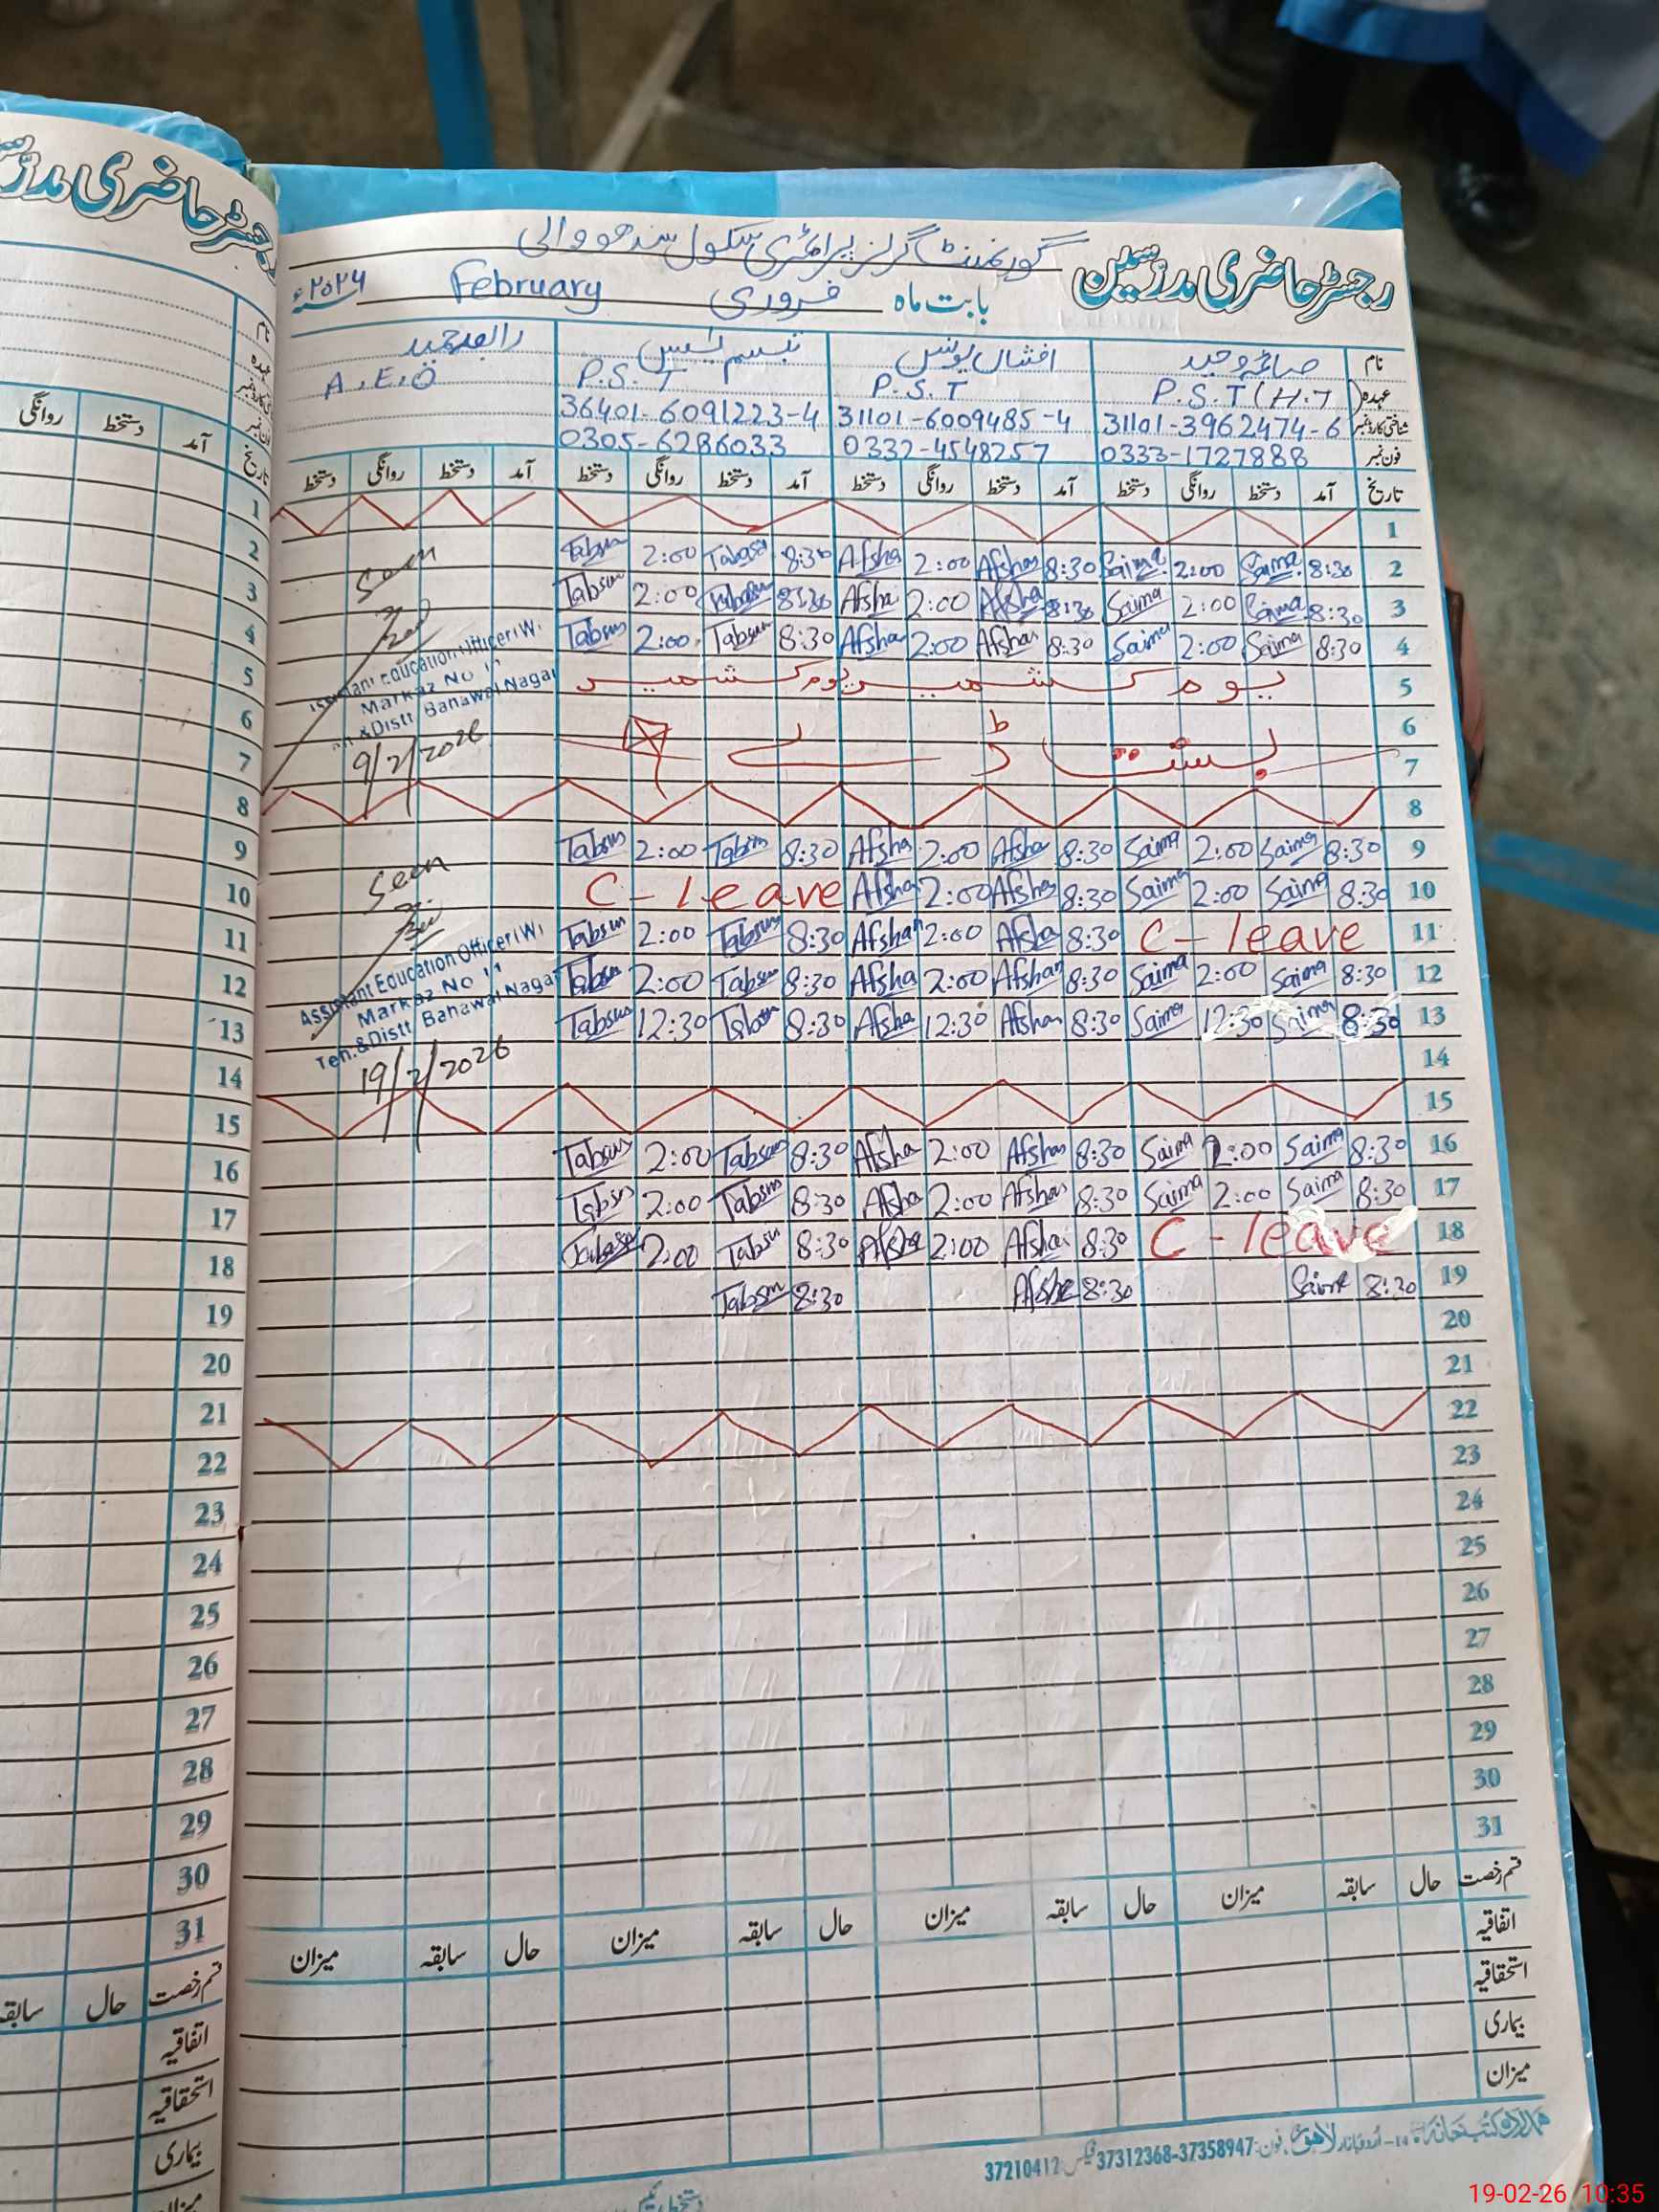 رجسٹر حاضری مدرسین
گورنمنٹ گرلز پرائمری سکول سندھووالی
بابت ماہ فروری February ۲۰۲۶ء
نام صائمہ وحید افشاں یونس تبسم یٰسین رابعہ حمید
عہدہ P.S.T (H.T) P.S.T P.S.T A.E.O
شناختی کارڈ نمبر 31101-3962474-6 31101-6009485-4 36401-6091223-4
فون نمبر 0333-1727888 0332-4548257 0305-6286033
تاریخ آمد دستخط روانگی دستخط آمد دستخط روانگی دستخط آمد دستخط روانگی دستخط آمد دستخط روانگی دستخط
1
2 8:30 Saima 2:00 Saima 8:30 Afshan 2:00 Afsha 8:30 Tabasu 2:00 Tabsum
3 8:30 Saima 2:00 Saima 8:30 Afsha 2:00 Afsha 8:30 Tabasum 2:00 Tabsum
4 8:30 Saima 2:00 Saima 8:30 Afshan 2:00 Afsha 8:30 Tabsum 2:00 Tabsum
5 یوم کشمیر یوم کشمیر
6
7 بسنت ڈے
8
9 8:30 Saima 2:00 Saima 8:30 Afsha 2:00 Afsha 8:30 Tabsm 2:00 Tabsum
10 8:30 Saima 2:00 Saima 8:30 Afsha 2:00 Afsha C-leave
11 C-leave 8:30 Afsha 2:00 Afshan 8:30 Tabsum 2:00 Tabsum
12 8:30 Saima 2:00 Saima 8:30 Afshan 2:00 Afsha 8:30 Tabsum 2:00 Tabsum
13 8:30 Saima 12:30 Saima 8:30 Afshan 12:30 Afsha 8:30 Tabsm 12:30 Tabsum
14
15
16 8:30 Saima 2:00 Saima 8:30 Afshan 2:00 Afsha 8:30 Tabsum 2:00 Tabsum
17 8:30 Saima 2:00 Saima 8:30 Afshan 2:00 Afsha 8:30 Tabsm 2:00 Tabsm
18 C-leave 8:30 Afshan 2:00 Afsha 8:30 Tabsu 2:00 Tabasum
19 8:30 Saima 8:30 Afsha 8:30 Tabsm
20
21
22
23
24
25
26
27
28
29
30
31
Seen
Assistant Education Officer (W)
Markaz No 11
Teh. & Distt Bahawal Nagar
9/2/2026
Seen
Assistant Education Officer (W)
Markaz No 11
Teh. & Distt Bahawal Nagar
19/2/2026
قسم رخصت حال سابقہ میزان حال سابقہ میزان حال سابقہ میزان حال سابقہ میزان
اتفاقیہ
استحقاقیہ
بیماری
میزان
اردو بازار لاہور فون: 37358947-37312368 فیکس: 37210412
رجسٹر حاضری مدرسین
نام
عہدہ
تاریخ آمد دستخط روانگی
1
2
3
4
5
6
7
8
9
10
11
12
13
14
15
16
17
18
19
20
21
22
23
24
25
26
27
28
29
30
31
قسم رخصت حال سابقہ
اتفاقیہ
استحقاقیہ
بیماری
19-02-26 10:35